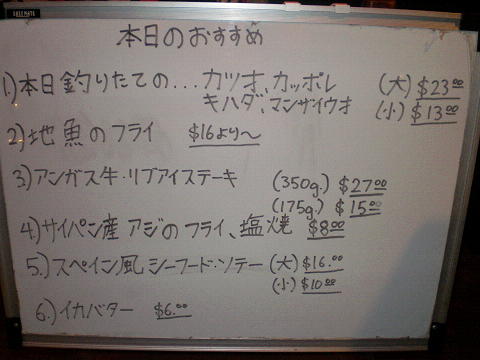 本日のおすすめ
1.)本日釣りたての...カツオ、カッポレ (大) $23.00
キハダ、マンザイウオ (小) $13.00
2.)地魚のフライ $16より〜
3.)アンガス牛・リブアイステーキ (350g.) $27.00
(175g.) $15.00
4.)サイパン産 アジのフライ、塩焼 $8.00
5.)スペイン風 シーフード・ソテー (大) $16.00
(小) $10.00
6.)イカバター $6.00